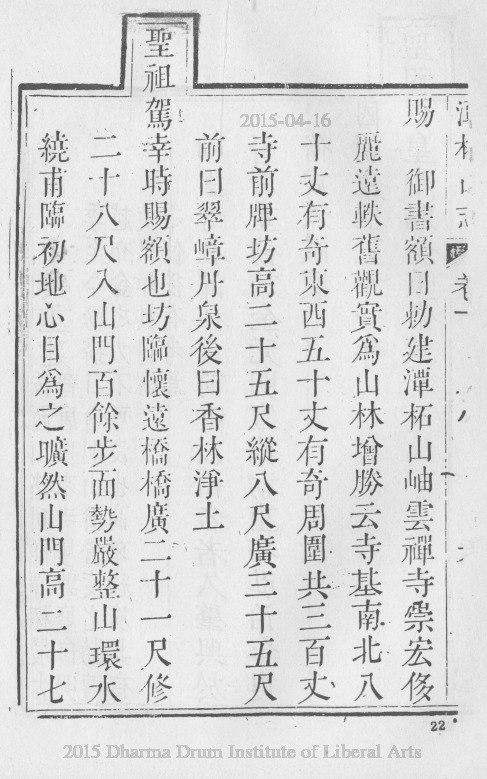 潭柘山志 卷一
賜 御書額曰勅建潭柘山岫雲禪寺崇宏侈
麗遠軼舊觀實為山林增勝云寺基南北八
十丈有奇東西五十丈有奇周圍共三百丈
寺前牌坊高二十五尺縱八尺廣三十五尺
前曰翠嶂丹泉後曰香林淨土
聖祖駕幸時賜額也坊臨懷遠橋橋廣二十一尺修
二十八尺入山門百餘步面勢嚴整山環水
繞甫臨初地心目為之曠然山門高二十七
22
2015-04-16
2015 Dharma Drum Institute of Liberal Arts